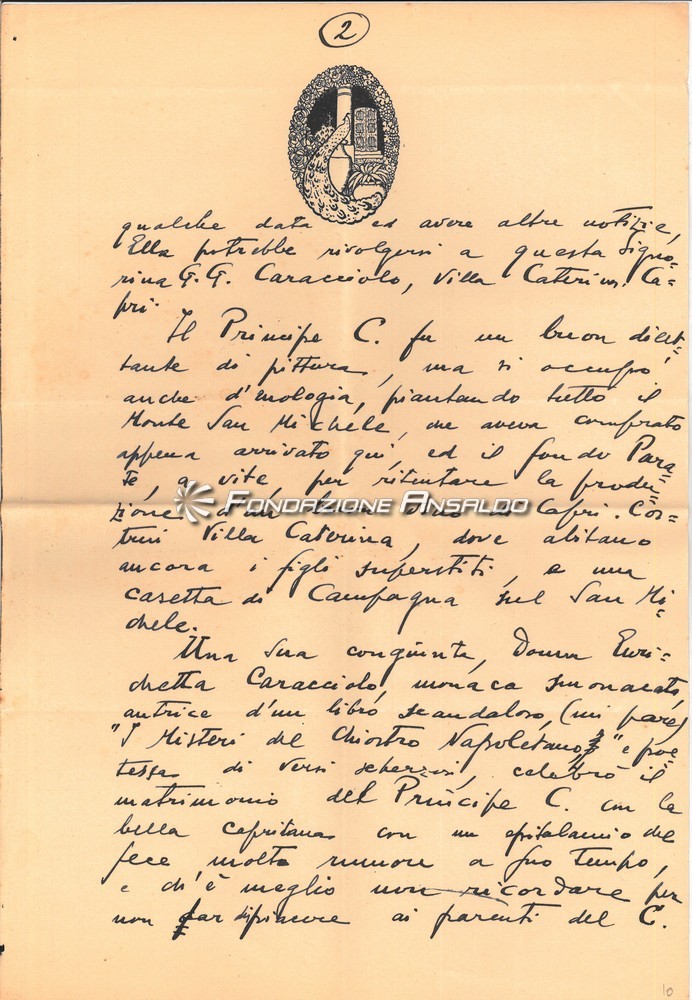 2
qualche data ed avere altre notizie,
Ella potrebbe rivolgersi a questa Signo=
rina G. G. Caracciolo, Villa Caterina. Ca=
pri.
Il Principe C. fu un buon dilet=
tante di pittura, ma si occupò
anche d'enologia, piantando tutto il
Monte San Michele, che aveva comprato
appena arrivato qui, ed il fondo Para=
te, a vite, per ritentare la produ=
zione d'un vino di Capri. Cos=
truì Villa Caterina, dove abitano
ancora i figli superstiti, e una
casetta di Campagna sul San Mi=
chele.
Una sua congiunta, Donna Enri=
chetta Caracciolo, monaca smonacata,
autrice d'un libro scandaloso, (mi pare)
"I Misteri del Chiostro Napoletano" e poe=
tessa di versi scherzosi, celebrò il
matrimonio del Principe C. con la
bella capritana con un epitalamio che
fece molto rumore a suo tempo,
e ch'è meglio non ricordare per
non far dispiacere ai parenti del C.
Fondazione Ansaldo
10